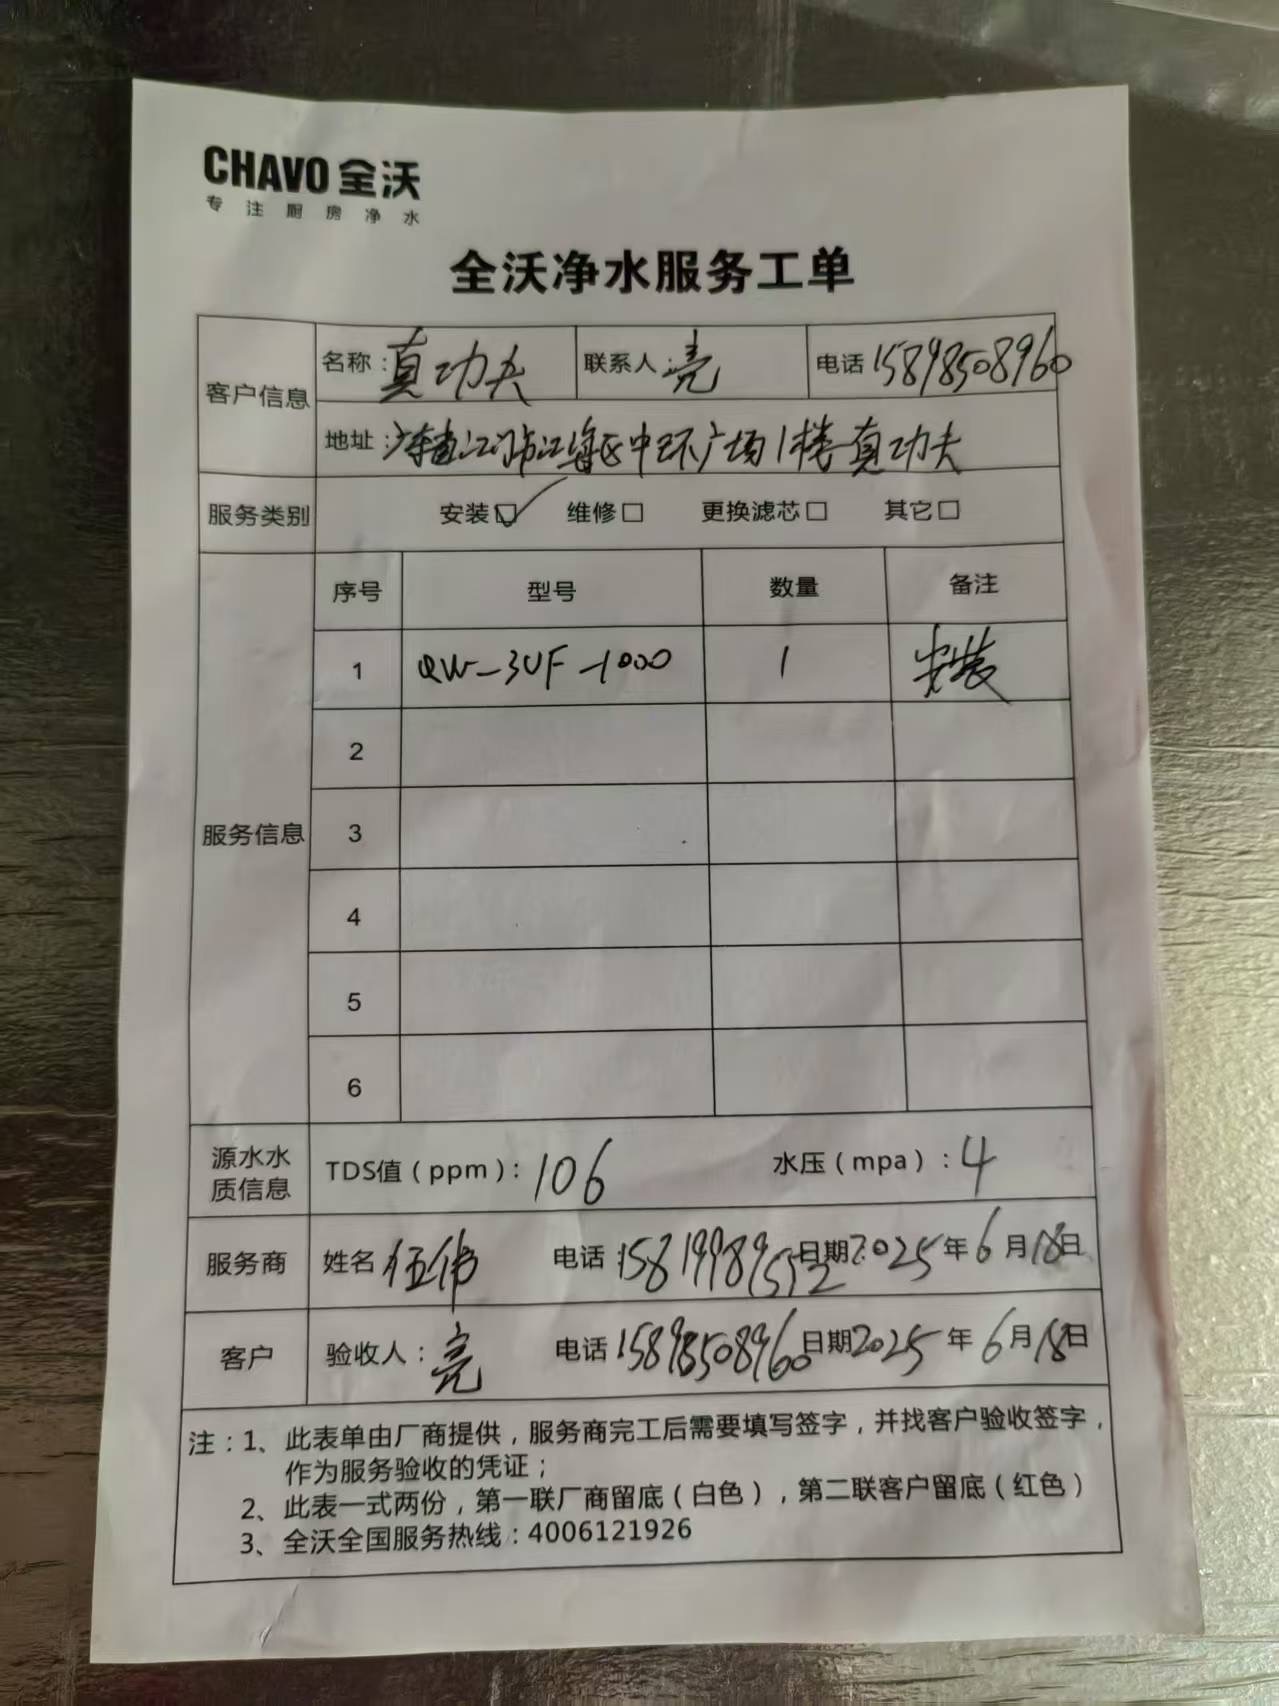 CHAVO 全沃
专注厨房净水
全沃净水服务工单
客户信息
名称：真功夫 联系人：亮 电话 15898508960
地址：广东省江门市江海区中环广场1楼真功夫
服务类别 安装☑ 维修□ 更换滤芯□ 其它□
服务信息
序号 型号 数量 备注
1 QW-3UF-1000 1 安装
2
3
4
5
6
源水水质信息 TDS值（ppm）：106 水压（mpa）：4
服务商 姓名 伍伟 电话 15819989552 日期 2025年6月18日
客户 验收人：亮 电话 15898508960 日期 2025年6月18日
注：1、此表单由厂商提供，服务商完工后需要填写签字，并找客户验收签字，
作为服务验收的凭证；
2、此表一式两份，第一联厂商留底（白色），第二联客户留底（红色）
3、全沃全国服务热线：4006121926